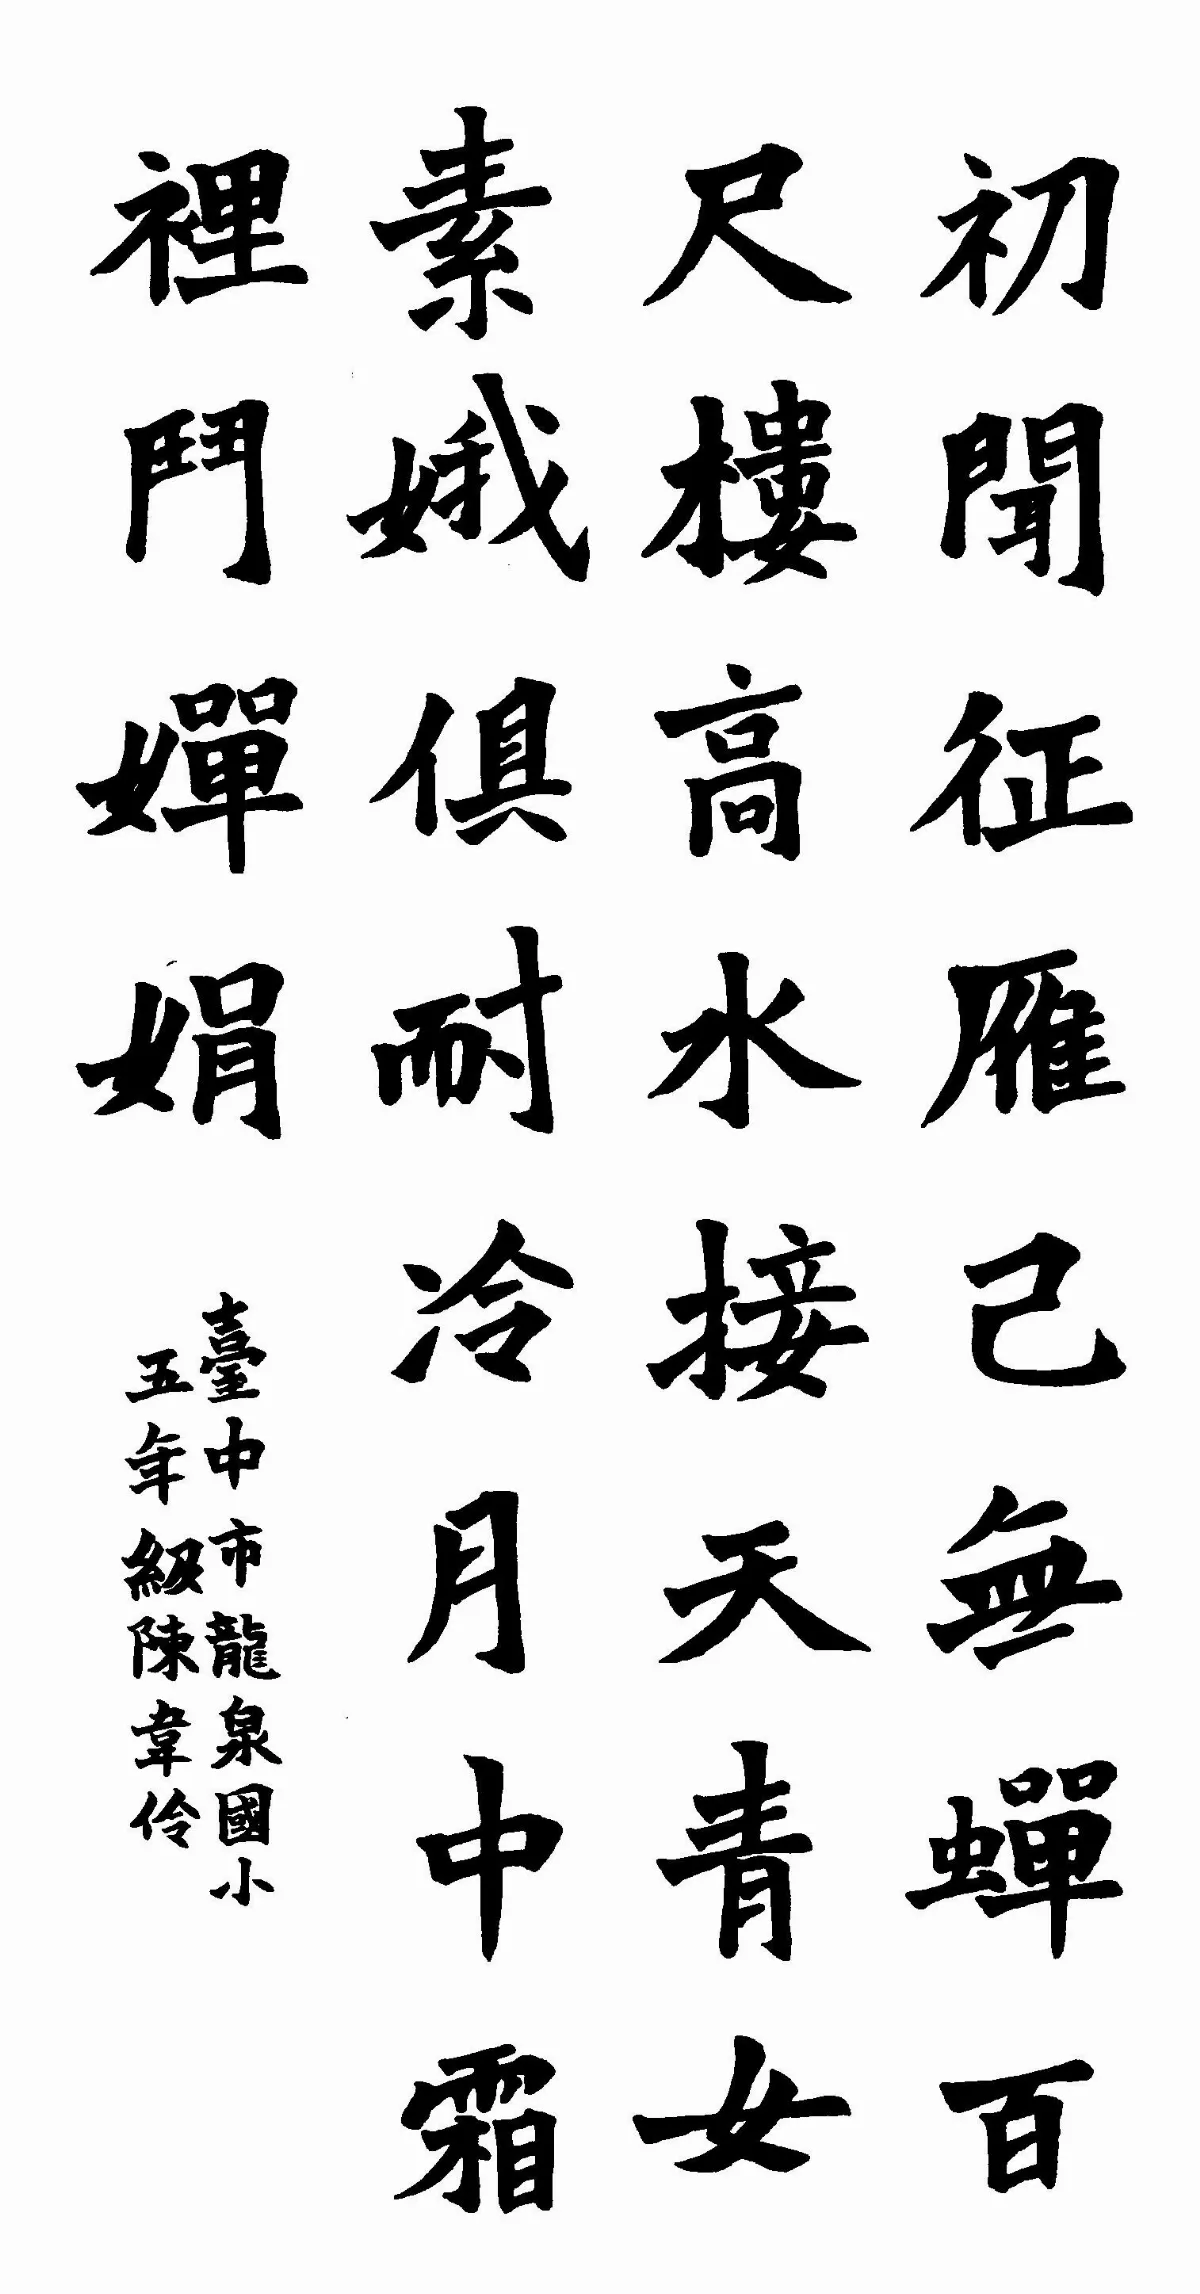 初聞征雁已無蟬百
尺樓高水接天青女
素娥俱耐冷月中霜
裡鬥嬋娟
臺中市龍泉國小
五年級陳韋伶